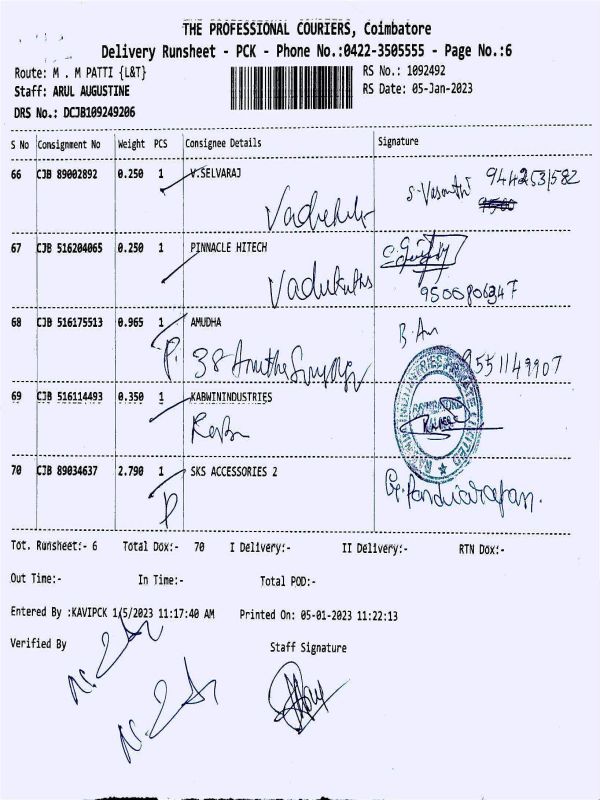 THE PROFESSIONAL COURIERS, Coimbatore
Delivery Runsheet - PCK - Phone No.:0422-3505555 - Page No.:6
Route: M . M PATTI {L&T} RS No.: 1092492
Staff: ARUL AUGUSTINE RS Date: 05-Jan-2023
DRS No.: DCJB109249206
S No Consignment No Weight PCS Consignee Details Signature
66 CJB 89002892 0.250 1 V.SELVARAJ
S. Vasanthi 9442531582
67 CJB 516204065 0.250 1 PINNACLE HITECH
9500806347
68 CJB 516175513 0.965 1 AMUDHA
P. 38
9551149907
69 CJB 516114493 0.350 1 KABWININDUSTRIES
70 CJB 89034637 2.790 1 SKS ACCESSORIES 2
P G. Pandiarajan.
Tot. Runsheet:- 6 Total Dox:- 70 I Delivery:- II Delivery:- RTN Dox:-
Out Time:- In Time:- Total POD:-
Entered By :KAVIPCK 1/5/2023 11:17:40 AM Printed On: 05-01-2023 11:22:13
Verified By Staff Signature